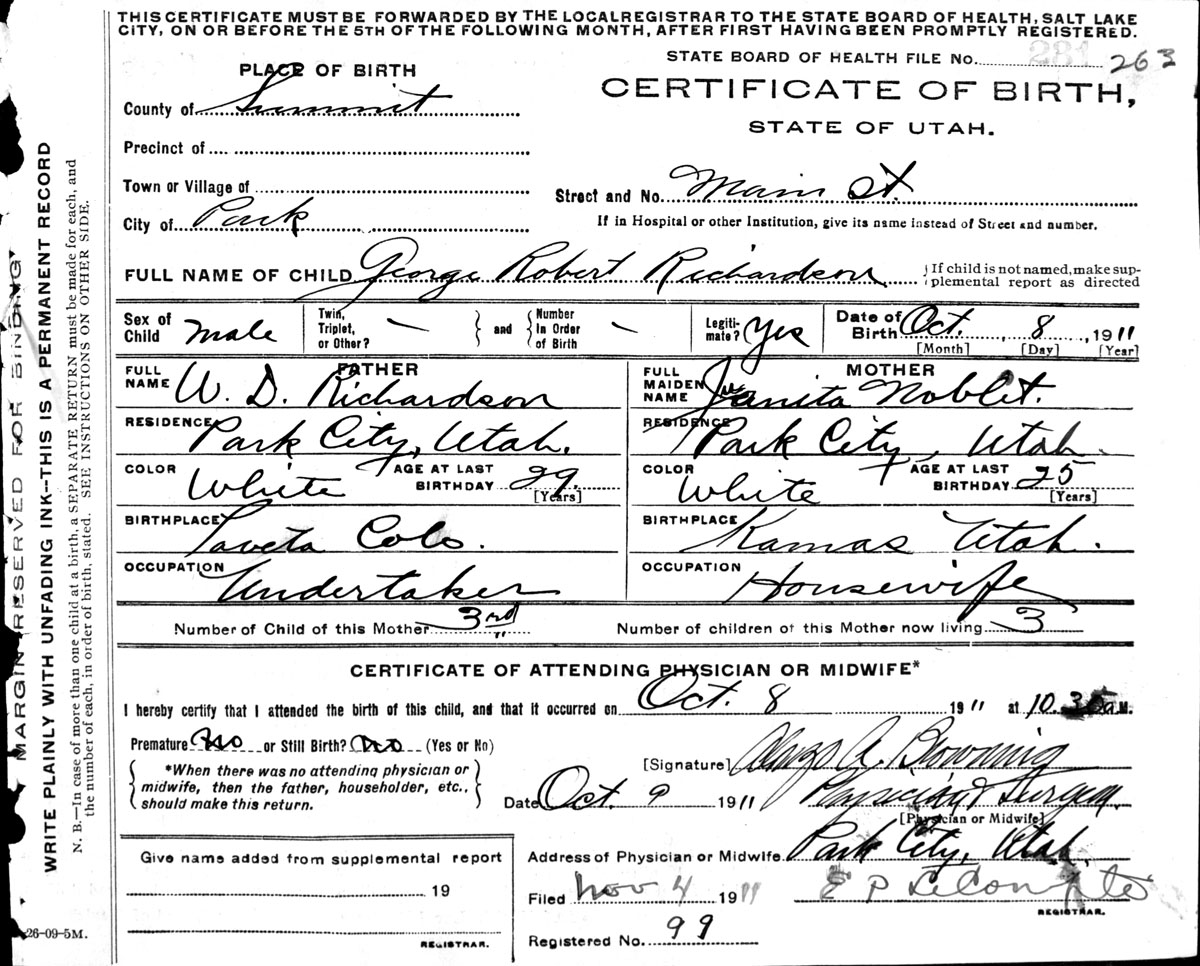 THIS CERTIFICATE MUST BE FORWARDED BY THE LOCAL REGISTRAR TO THE STATE BOARD OF HEALTH, SALT LAKE
CITY, ON OR BEFORE THE 5TH OF THE FOLLOWING MONTH, AFTER FIRST HAVING BEEN PROMPTLY REGISTERED.
STATE BOARD OF HEALTH FILE No. 281 263
PLACE OF BIRTH
CERTIFICATE OF BIRTH,
STATE OF UTAH.
County of Summit
Precinct of
Town or Village of
Street and No. Main St.
City of Park
If in Hospital or other Institution, give its name instead of Street and number.
FULL NAME OF CHILD George Robert Richardson
If child is not named, make sup-
plemental report as directed
Sex of Child Male
Twin, Triplet, or Other? —
and
Number In Order of Birth —
Legiti-mate? Yes
Date of Birth Oct. 8, 1911
[Month] [Day] [Year]
FATHER
FULL NAME W. D. Richardson
RESIDENCE Park City, Utah.
COLOR White
AGE AT LAST BIRTHDAY 29. [Years]
BIRTHPLACE Laveta Colo.
OCCUPATION Undertaker
MOTHER
FULL MAIDEN NAME Juanita Noblet.
RESIDENCE Park City, Utah.
COLOR White
AGE AT LAST BIRTHDAY 25 [Years]
BIRTHPLACE Kamas Utah.
OCCUPATION Housewife
Number of Child of this Mother 3rd
Number of children of this Mother now living 3
CERTIFICATE OF ATTENDING PHYSICIAN OR MIDWIFE*
I hereby certify that I attended the birth of this child, and that it occurred on Oct. 8 1911 at 10.30 a.M.
Premature? No or Still Birth? No (Yes or No)
*When there was no attending physician or
midwife, then the father, householder, etc.,
should make this return.
[Signature] A. Browning
Date Oct. 9 1911
Physician & Surgeon.
[Physician or Midwife]
Address of Physician or Midwife Park City, Utah.
Give name added from supplemental report
19
REGISTRAR.
Filed Nov 4 1911
E P LeCompte
REGISTRAR.
Registered No. 99
MARGIN RESERVED FOR BINDING
WRITE PLAINLY WITH UNFADING INK—THIS IS A PERMANENT RECORD
N. B.—In case of more than one child at a birth, a SEPARATE RETURN must be made for each, and
the number of each, in order of birth, stated. SEE INSTRUCTIONS ON OTHER SIDE.
26-09-5M.